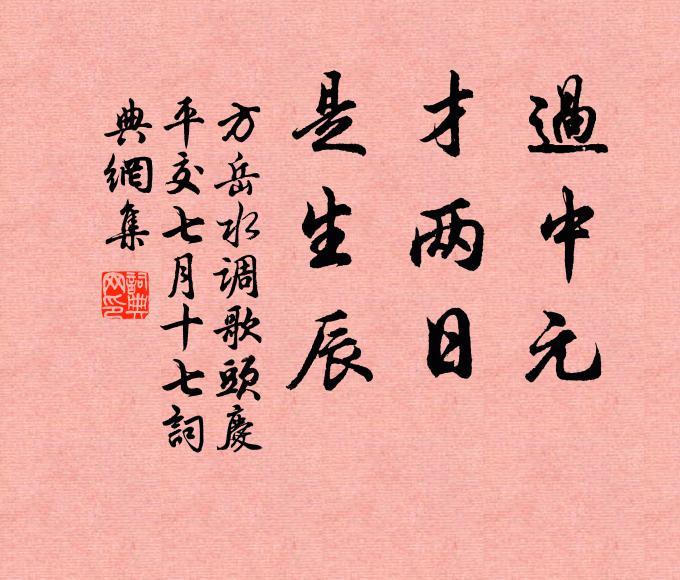 過中元
才两日
是生辰
方岳水调歌頭慶
平交七月十七詞
典網集
詞典
网印